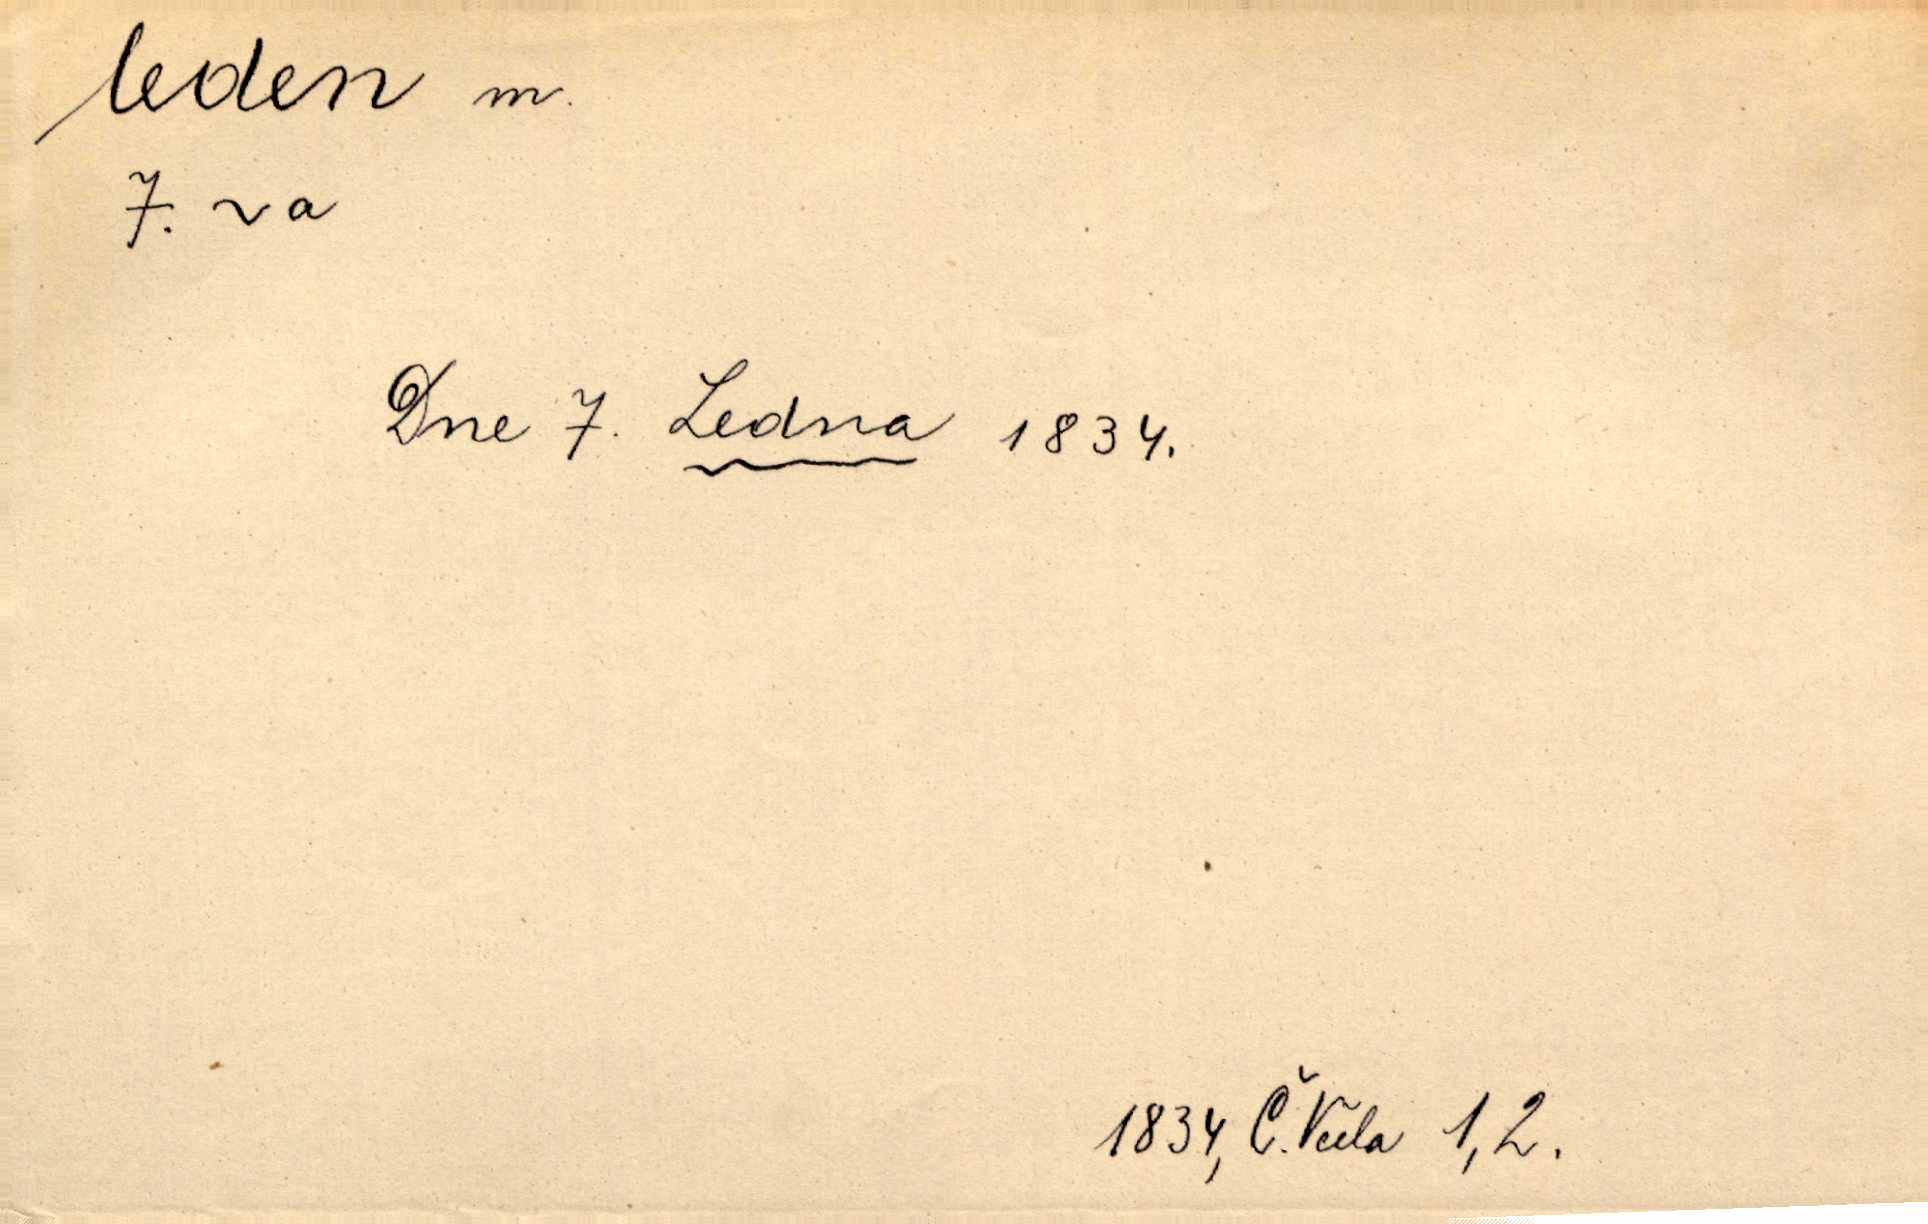 leden m.
7. ~ a
Dne 7. Ledna 1834.
1834, Č. Včela 1, 2.